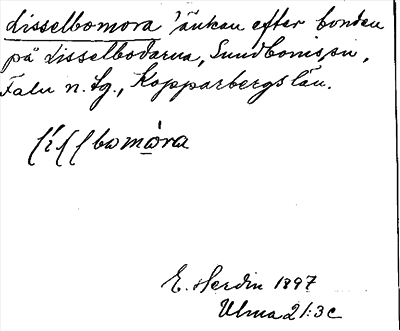 disselbomora 'änkan efter bonden
på disselbodarna, Sundborns sn,
Falu n. tg., Kopparbergs län.
E. Herdin 1897
Ulma 21:3c